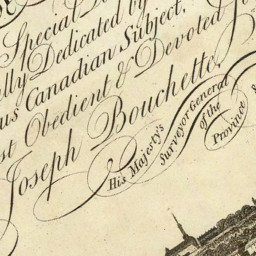 Special
Dedicated by
Canadian Subject,
Obedient & Devoted
Joseph Bouchette,
His Majesty's
Surveyor General
of the
Province